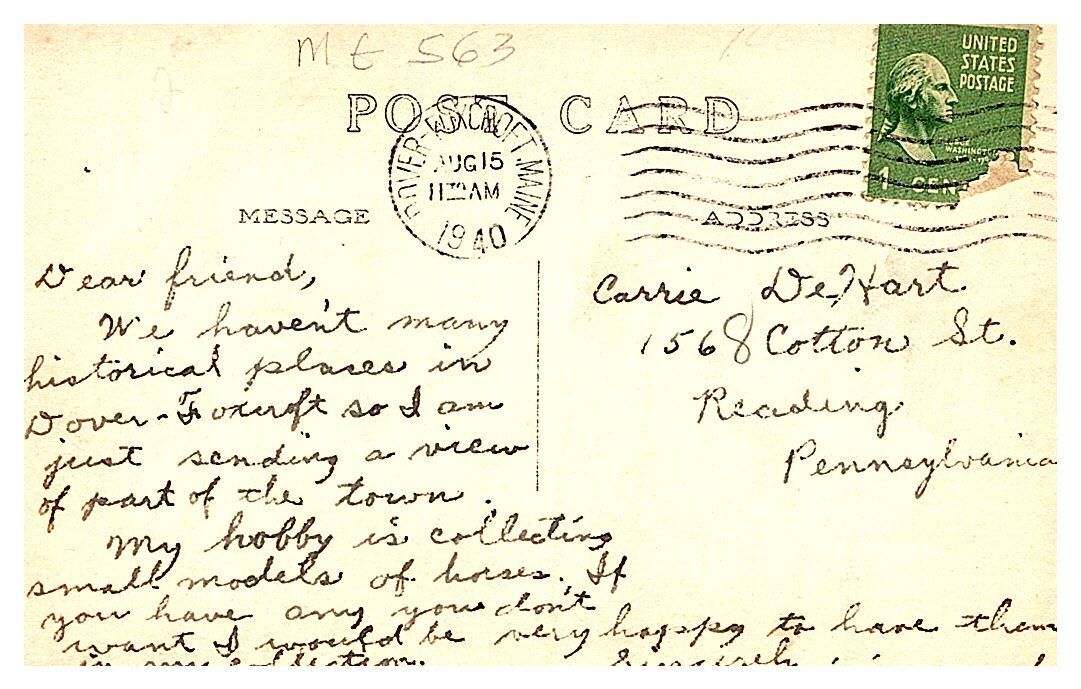 ME 563
POST CARD
UNITED
STATES
POSTAGE
WASHINGTON
1 CEN
DOVER-FOXCROFT, MAINE
AUG 15
11 AM
1940
MESSAGE
ADDRESS
Dear friend,
We haven't many
historical places in
Dover-Foxcroft so I am
just sending a view
of part of the town.
My hobby is collecting
small models of horses. If
you have any you don't
want I would be very happy to have them
in my collection.
Sincerely
Carrie DeHart
1568 Cotton St.
Reading
Pennsylvania